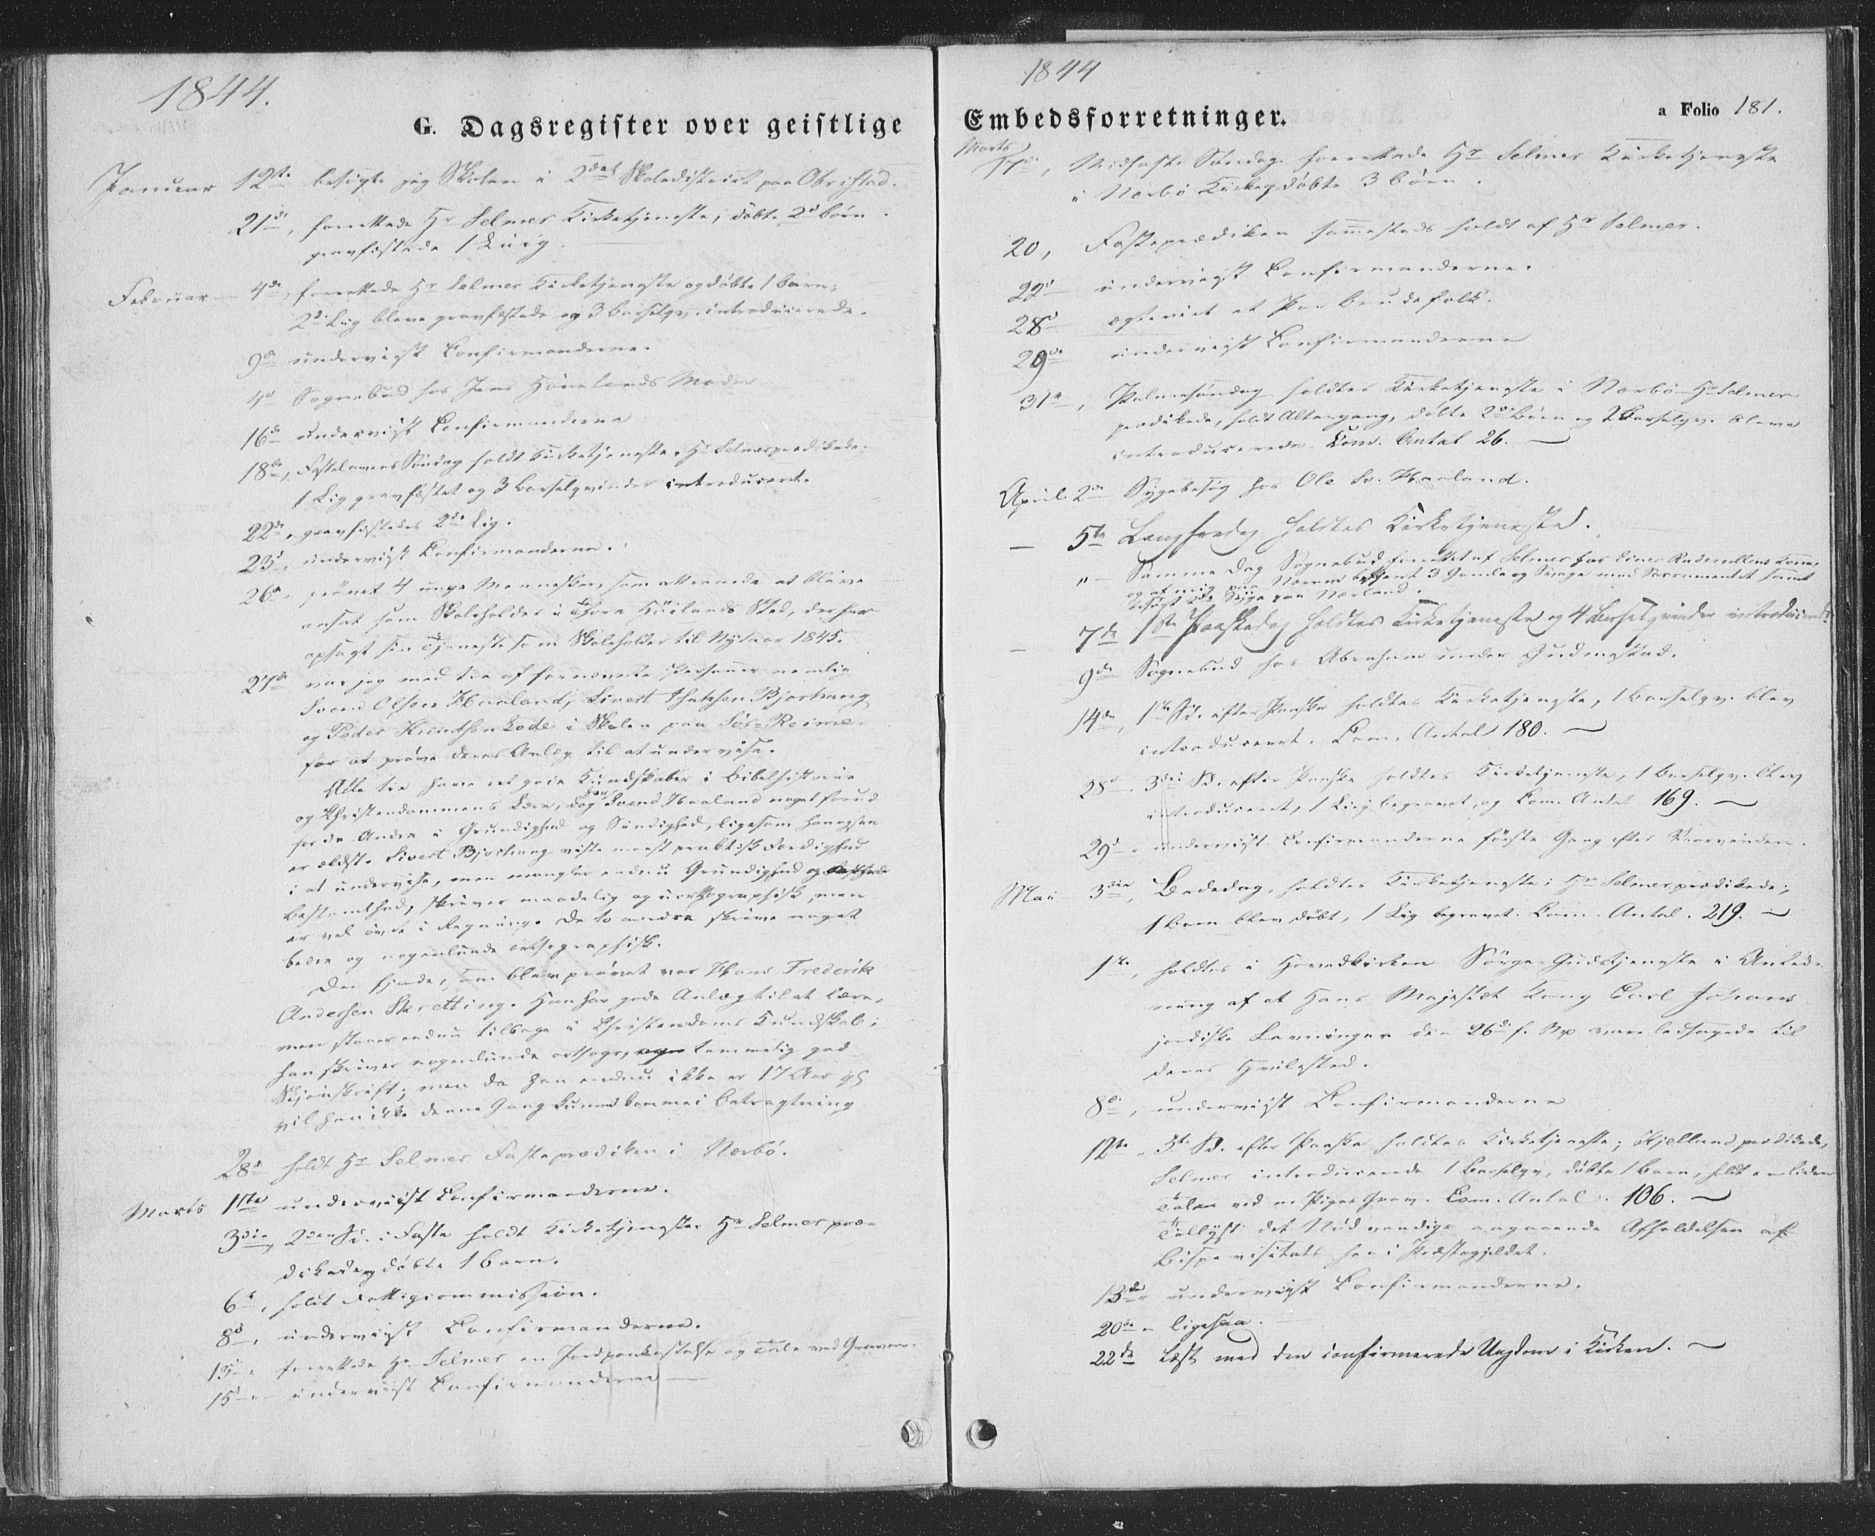 1844.
G. Dagsregister over geistlige
Januar 12te besøgte jeg Skolen i 2det Skoledistrict paa Obrestad.
21de, forrettede Hr Selmer Kirketjeneste, døbte 2de Børn.
gravfæstede 1 Liig.
Februar 4de, forrettede Hr Selmer Kirketjeneste og døbte 1 Barn,
2de Liig bleve gravfæstede og 3 Barselqv. introducerede.
9de underviist Confirmanderne.
Sognebud hos Jens Hønelands Moder
16de underviist Confirmanderne
18de, Fastelavens Søndag holdt Kirketjeneste. Hr Selmer prædikede;
1 Liig gravfæstet og 3 Barselqvinder introduceret.
22de, gravfæstedes 2de Lig.
23de, underviist Confirmanderne.
26de, prøvet 4 unge Mennesker, som attraaede at blive
ansat som Skoleholder i Thore Kiislands Sted, der har
opsagt sin Tjeneste som Skoleholder til Nytaar 1845.
27de var jeg med tre af fornævnte Personer nemlig
Svend Olsen Haaland, Sivert Bjorhaug
og Peder i Skolen paa Sør-Reime
for at prøve deres Anlæg til at undervise.
Alle tre have ret gode Kundskaber i Bibelhistorie
og Christendommens Lære, dog har Svend Haaland noget forud
for de Andre i Grundighed og Stadighed, ligesom han ogsaa
er ældst. Sivert Bjorhaug viste meest praktisk Færdighed
i at undervise, men mangler endnu Grundighed og
Bestemthed, skriver maadelig og uorthographisk, men
er vel øvet i Regning. De to andre skrive noget
bedre og nogenlunde orthographisk.
Den fjerde, som blev prøvet var Hans Frederik
Andersen Skretting. Han har gode Anlæg til at lære,
men staaer endnu tilbage i Christendoms Kundskab;
han skriver nogenlunde orthogr, temmelig god
Skjønskrift; men da han endnu ikke er 17 Aar gl
vil han ikke denne Gang kunne komme i Betragtning
28de holdt Hr Selmer Fasteprædiken i Nærbø.
Marts 1ste underviist Confirmanderne.
3die, 2den Sd. i Faste holdt Kirketjeneste. Hr Selmer præ-
dikede og døbte 1 Barn.
6te, holdt Fattigcommission.
8de, underviist Confirmanderne.
13de, forrettede Hr Selmer en Jordpaakastelse og Tale ved Graven.
15de, underviist Confirmanderne
1844
Embedsforretninger.
a Folio 181.
Marts
17de, Midfaste Søndag forrettede Hr Selmer Kirketjeneste
i Nærbø Kirke, døbte 3 Børn.
20, Fasteprædiken sammesteds holdt af Hr Selmer.
22de underviist Confirmanderne.
28de egteviet et Par Brudefolk.
29de underviist Confirmanderne
31te, Palmesøndag holdtes Kirketjeneste i Nærbø. Hr Selmer
prædikede, holdt Altergang, døbte 2de Børn og 2 Barselqv. bleve
introducerede. Com. Antal 26. —
April 2de Sygebesøg hos Ole Sv. Haaland.
— 5te Langfredag holdtes Kirketjeneste.
" — Samme Dag Sognebud forrettet af Selmer hos Einer Kone,
og af mig paa Nærem betjent 3 Gamle og Svage med Sacramentet samt
besøgt Syge paa Nærland.
— 7de 1ste Paaskedag holdtes Kirketjeneste og 4 Barselqvinder introducered.
9de Sognebud hos Abraham under Gudmestad.
14de, 1ste Sd. efter Paaske holdtes Kirketjeneste, 1 Barselqv. blev
introduceret. Com. Antal 180. —
28de. 3die Sd. efter Paaske holdtes Kirketjeneste, 1 Barselqv. blev
introduceret, 1 Liig begravet, og Com. Antal 169. —
29de. underviist Confirmanderne første Gang efter Vaaronnen.
Mai — 3die, Bededag, holdtes Kirketjeneste; Hr Selmer prædikede;
1 Barn blev døbt, 1 Lig begravet. Com. Antal. 219. —
1ste, holdtes i Hovedkirken Sørge-Gudstjeneste i Anled-
ning af at Hans Majestæt Kong Carl Johans
jordiske Levninger den 26de f. M. vare ledsagede til
deres Hvilested.
8de, underviist Confirmanderne
12te. 5te Sd. efter Paaske holdtes Kirketjeneste; Kjelland prædikede,
Selmer introducerede 1 Barselqv, døbte 1 Barn, holdt en liden
Tale ved en Piges Grav. Com. Antal. 106. —
Tillyst det Nødvendige angaaende Afholdelsen af
Bispevisitats her i Præstegjeldet.
13de. underviist Confirmanderne.
20de. ligesaa.
22de læst med den confirmerede Ungdom i Kirken. —